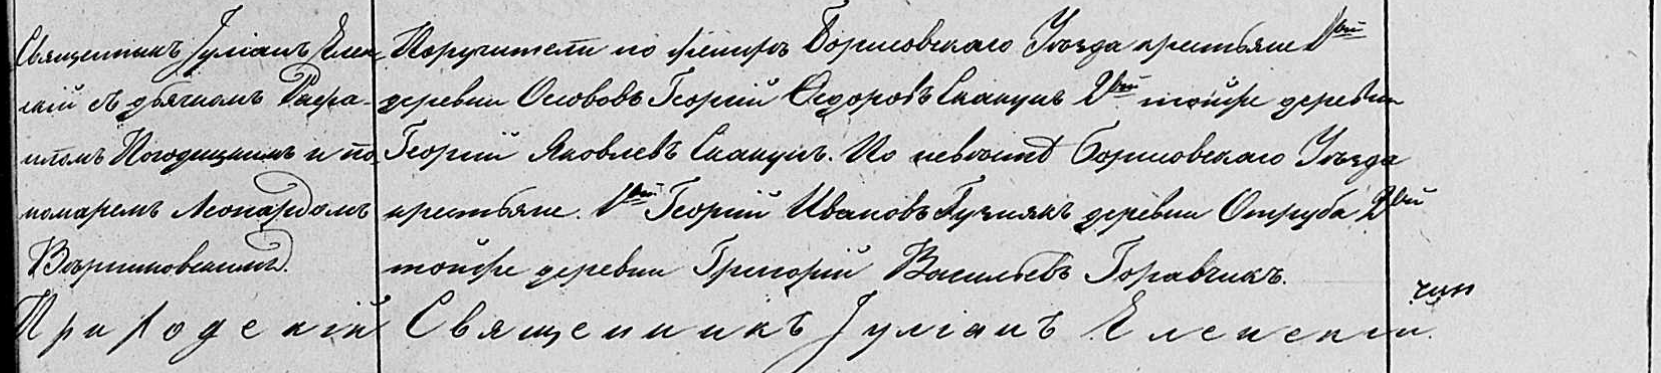 Священникъ Іуліанъ Елен-
скій съ дьячкомъ Рафа-
иломъ Погодицкимъ и по-
номаремъ Леонардомъ

Поручители по женихѣ Борисовскаго Уѣзда крестьяне 1вый
деревни Осововъ Георгій Ѳедоровъ Скакунъ 2вый тойже деревни
Георгій Яковлевъ Скакунъ. По невѣстѣ Борисовскаго Уѣзда
крестьяне. 1вый Георгій Ивановъ деревни Отруба 2вый
тойже деревни Григорій Васильевъ Горавчикъ.
Священникъ Іуліанъ Еленскій.